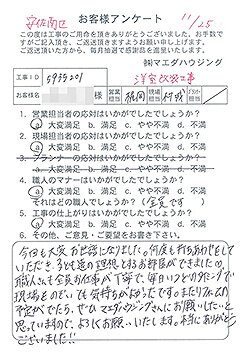 安佐南区
お客様アンケート
11/25
この度は工事のご用命を頂きありがとうございました。お手数で
すがご記入頂き、ご返送頂きますようお願い申し上げます。
ご返送頂いた方から、毎月抽選で感謝品を進呈いたします。
㈱マエダハウジング
工事ID 5935201 洋室改装事
お客様名 営業担当 現場担当
1. 営業担当者の対応はいかがでしたでしょうか?
ⓐ大変満足 b. 満足 c. やや不満 d. 不満
2. 現場担当者の対応はいかがでしたでしょうか?
ⓐ大変満足 b. 満足 c. やや不満 d. 不満
3. プランナーの対応はいかがでしたでしょうか?
a. 大変満足 b. 満足 c. やや不満 d. 不満
4. 職人のマナーはいかがでしたでしょうか?
ⓐ大変満足 b. 満足 c. やや不満 d. 不満
それはどの職人でしょうか?(全員です)
5. 工事の仕上がりはいかがでしたでしょうか?
ⓐ大変満足 b. 満足 c. やや不満 d. 不満
6. その他、ご意見・ご要望をお書き下さい。
今回も大変お世話になりました。何度も打ち合わせをして
いただき、子ども達の理想とするお部屋ができました。
職人さんも全員お仕事が丁寧で、毎日いつものぞいて
現場もきれいで、気持ちが良かったです。またリフォームの
予定がでたら、ぜひマエダハウジングさんにお願いしたいと
思っていますので、よろしくお願いいたします。本当にありがとう
ございました!!